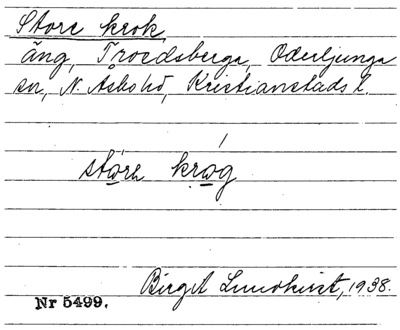 Store krok
äng, Troedsberga, Oderljunga
sn, N. Åsbo hd, Kristianstads l.
störe krog
Birgit Lundkvist, 1938.
Nr 5499.